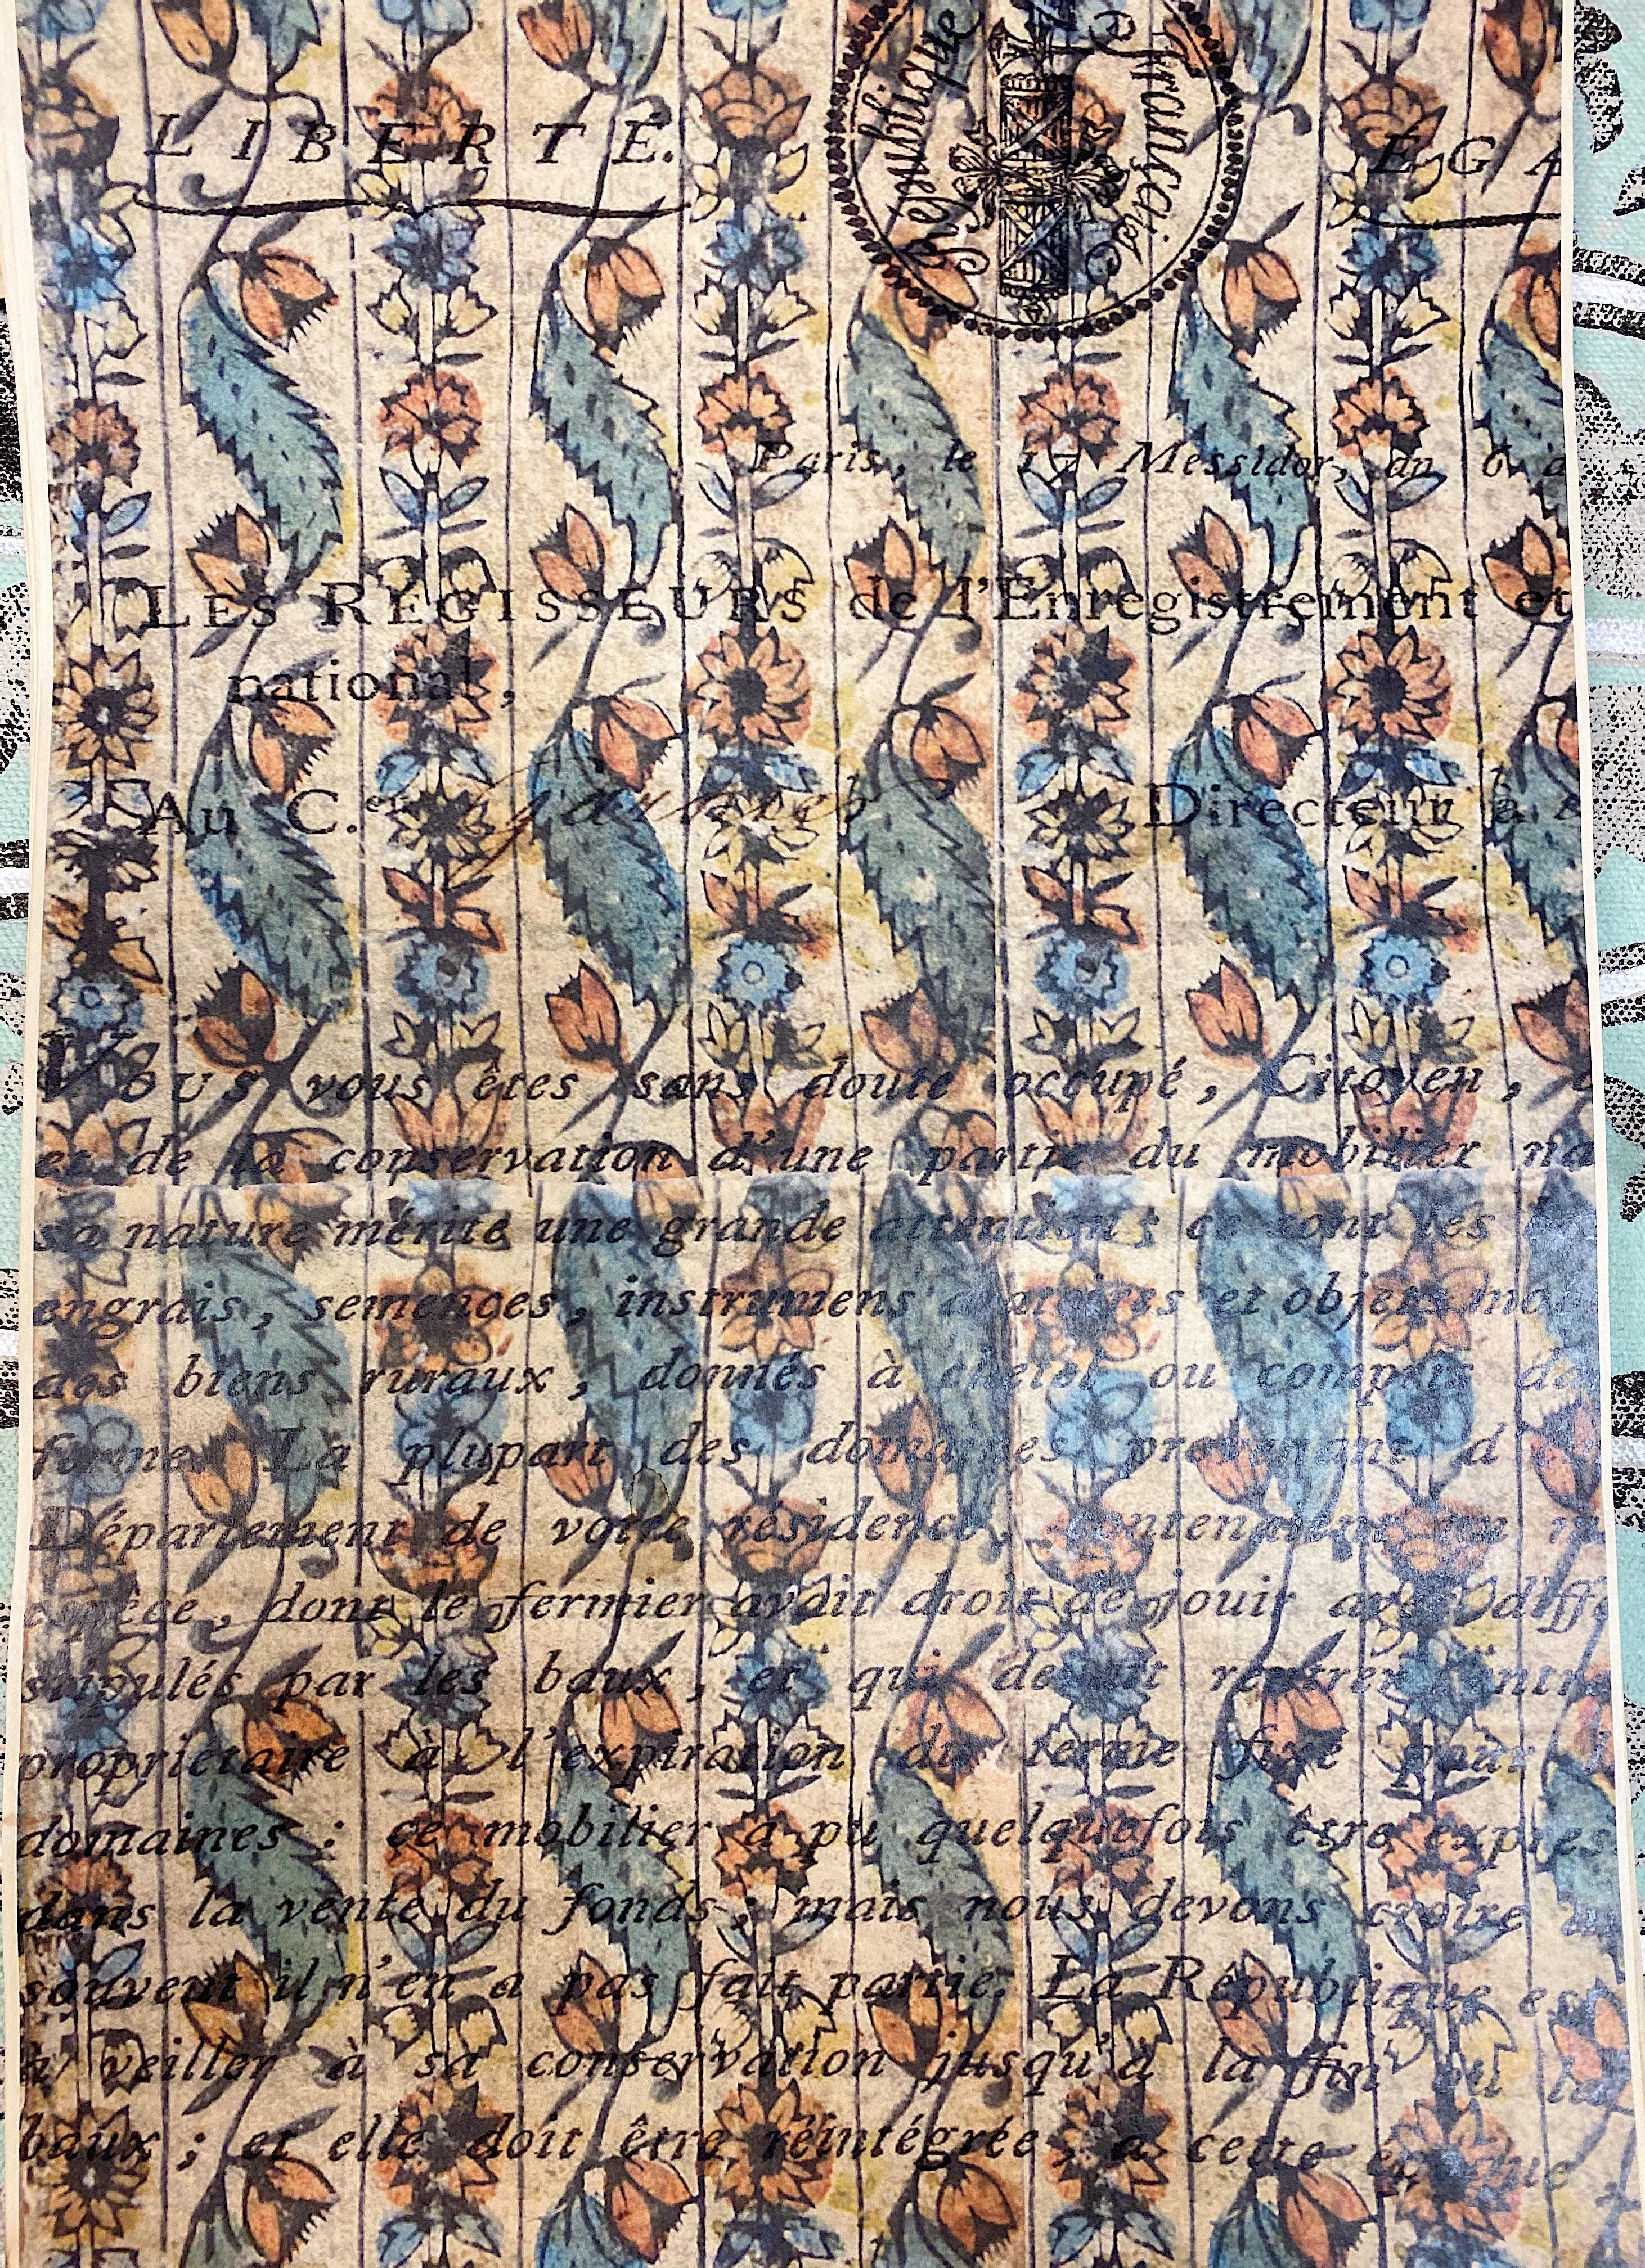 République Française
LIBERTÉ. ÉGA
Paris, le 17 Messidor, an 6
LES RÉGISSEURS de l'Enregistrement et
national,
Au C.en Directeur à
Vous vous êtes sans doute occupé, Citoyen,
et de la conservation d'une partie du mobilier na
sa nature mérite une grande attention; ce sont les
engrais, semences, instrumens aratoires et objets mo
des biens ruraux, donnés à cheptel ou compris da
ferme. La plupart des domaines provenant d'
Département de votre résidence, contenaient un m
espèce, dont le fermier avait droit de jouir avec diff
stipulés par les baux, et qui devait rentrer entr
propriétaire à l'expiration du terme fixé pour l
domaines : ce mobilier a pu quelquefois être expres
dans la vente du fonds; mais nous devons croire
souvent il n'en a pas fait partie. La République es
à veiller à sa conservation jusqu'à la fin ou la
baux ; et elle doit être réintégrée, à cette époque